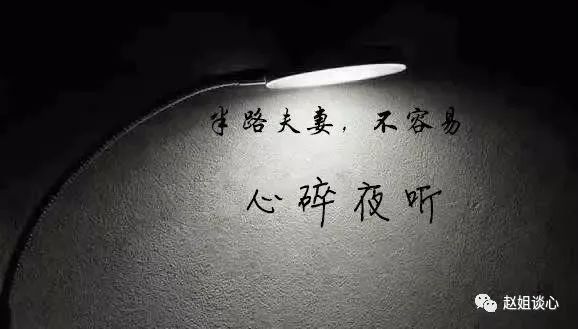 半路夫妻，不容易
心碎夜听
赵姐谈心